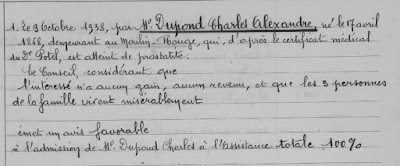 1. Le 9 Octobre 1938, par Mr Dupond Charles Alexandre, né le 17 avril
1868, demeurant au Moulin-Rouge, qui, d'après le certificat médical
du Dr Potel, est atteint de prostatite.
Le Conseil, considérant que
l'intéressé n'a aucun gain, aucun revenu, et que les 3 personnes
de la famille vivent misérablement
émet un avis favorable
à l'admission de Mr Dupond Charles à l'assistance totale 100%